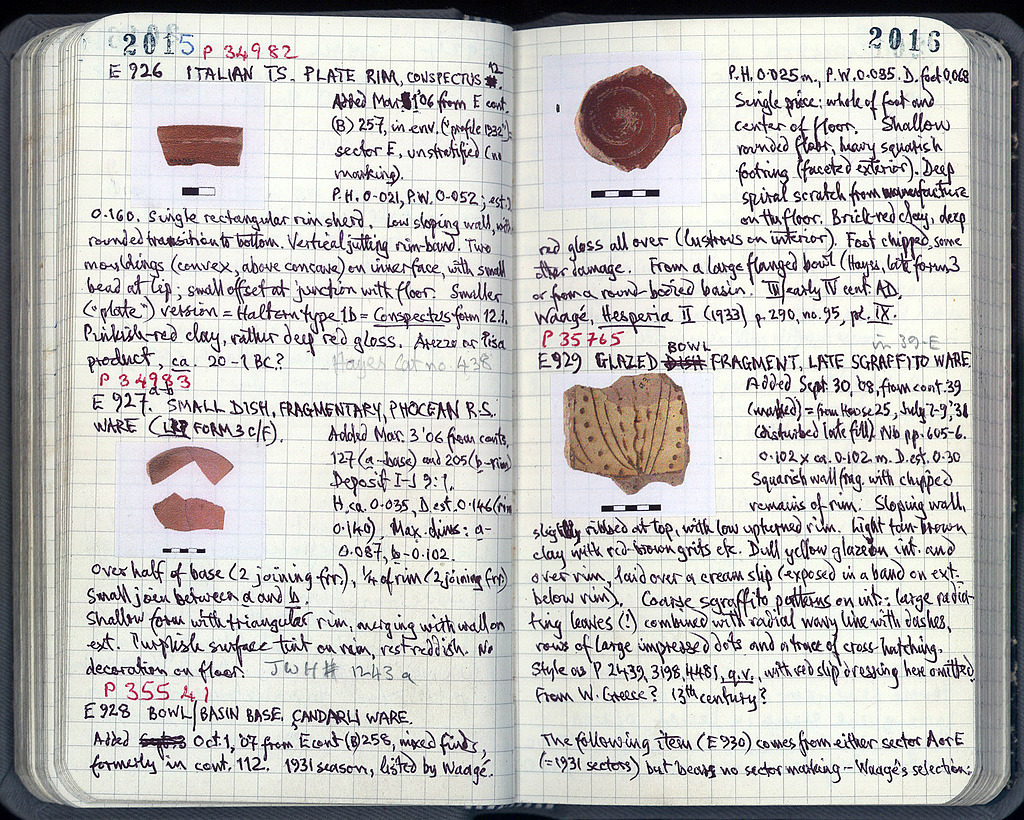 2015
P 34982
E 926 ITALIAN T.S. PLATE RIM, CONSPECTUS 12
Added Mar. 1 '06 from E cont.
(B) 257, in env. ("profile 1332"),
sector E, unstratified (no
marking).
P.H. 0.021, P.W. 0.052; est.
0.160. Single rectangular rim sherd. Low sloping wall, with
rounded transition to bottom. Vertical jutting rim-band. Two
mouldings (convex, above concave) on inner face, with small
bead at lip; small offset at junction with floor. Smaller
("plate") version = Haltern type 1b = Conspectus form 12.1.
Pinkish-red clay, rather deep red gloss. Arezzo or Pisa
product, ca. 20-1 BC? Hayes Cat no. 438
P 34983
a-b
E 927. SMALL DISH, FRAGMENTARY, PHOCEAN R.S.
WARE (LRP FORM 3 C/F).
Added Mar. 3 '06 from conts.
127 (a-base) and 205 (b-rim)
Deposit I-J 9:1.
H. ca. 0.035, D. est. 0.146 (rim
0.140), Max. dims: a-
0.087, b-0.102.
Over half of base (2 joining frr.), 1/4 of rim (2 joining frr)
Small join between a and b.
Shallow form with triangular rim, merging with wall on
ext. Purplish surface tint on rim, rest reddish. No
decoration on floor. JWH # 1243 a
P 35541
E 928 BOWL/BASIN BASE, ÇANDARLI WARE.
Added Oct. 1, '07 from E cont (B) 258, mixed finds,
formerly in cont. 112. 1931 season, listed by Waagé.
2016
P.H. 0.025 m., P.W. 0.095. D. foot 0.068
Single piece: whole of foot and
center of floor. Shallow
rounded floor, heavy squarish
footring (faceted exterior). Deep
spiral scratch from manufacture
on the floor. Brick-red clay, deep
red gloss all over (lustrous on interior). Foot chipped, some
other damage. From a large flanged bowl (Hayes, late form 3
or from a round-bodied basin. III/early IV cent. AD.
Waagé, Hesperia II (1933) p. 290, no. 95, pl. IX.
P 35765
in 39-E
BOWL
E 929 GLAZED DISH FRAGMENT, LATE SGRAFFITO WARE.
Added Sept. 30, '08, from cont. 39
(marked) = from House 25, July 7-9, '31
(disturbed late fill). Nb pp. 605-6.
0.102 x ca. 0.102 m. D. est. 0.30
Squarish wall frag. with chipped
remains of rim. Sloping wall,
slightly ribbed at top, with low upturned rim. Light tan-brown
clay with red-brown grits etc. Dull yellow glaze on int. and
over rim, laid over a cream slip (exposed in a band on ext.
below rim). Coarse sgraffito patterns on int.: large radia-
ting leaves (?) combined with radial wavy line with dashes,
rows of large impressed dots and a trace of cross-hatching.
Style as P 2439, 3198, 4481, q.v., with red slip dressing here omitted
From W. Greece? 13th century?
The following item (E 930) comes from either sector A or E
(=1931 sectors) but bears no sector marking - Waagé's selection: